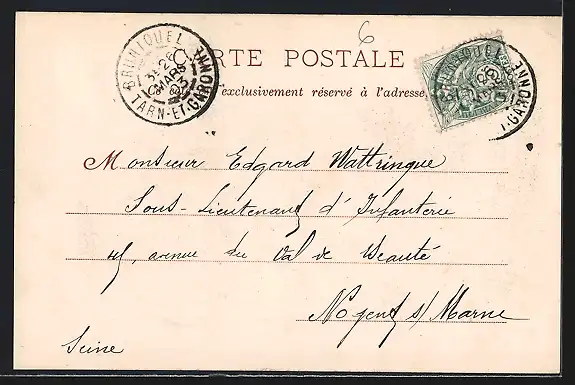 6
CARTE POSTALE
exclusivement réservé à l'adresse
BRUNIQUEL
TARN-ET-GARONNE
MARS
Monsieur Edgard Wattringue
Sous-Lieutenant d'Infanterie
45, avenue du Val de Beauté
Nogent s/ Marne
Seine